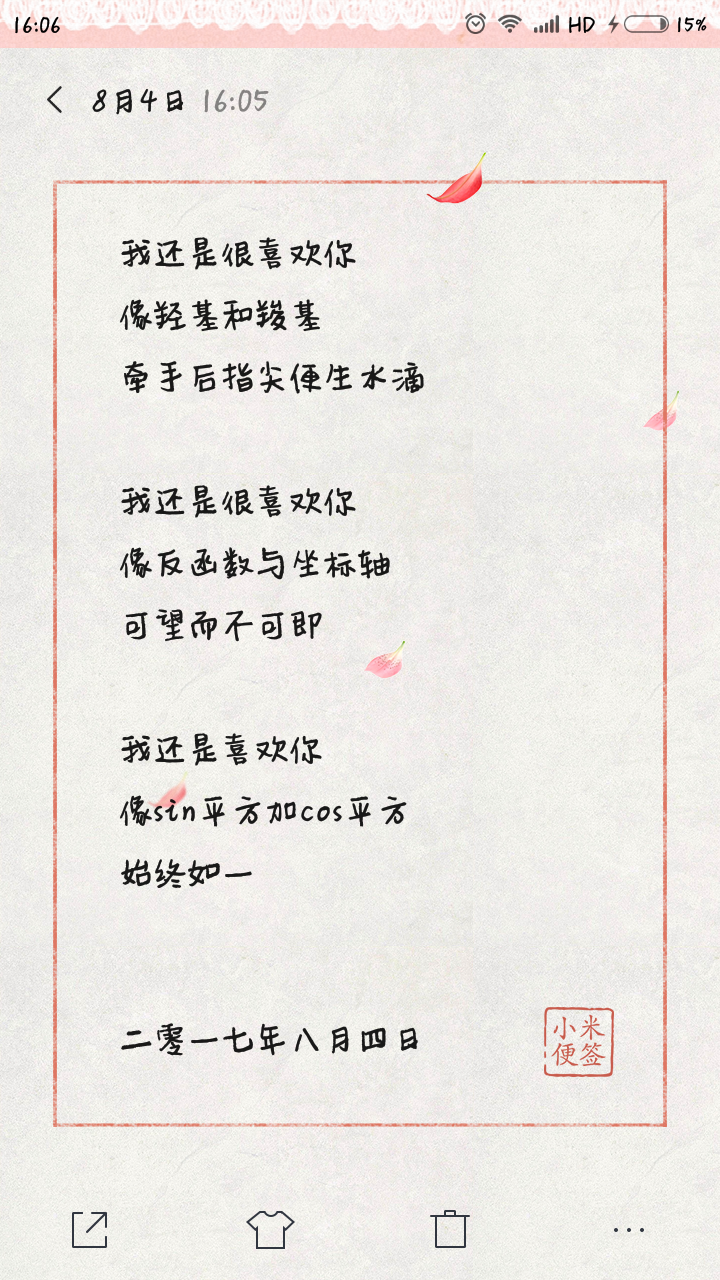 16:06 HD 15%
8月4日 16:05
我还是很喜欢你
像羟基和羧基
牵手后指尖便生水滴
我还是很喜欢你
像反函数与坐标轴
可望而不可即
我还是喜欢你
像sin平方加cos平方
始终如一
二零一七年八月四日
小米
便签